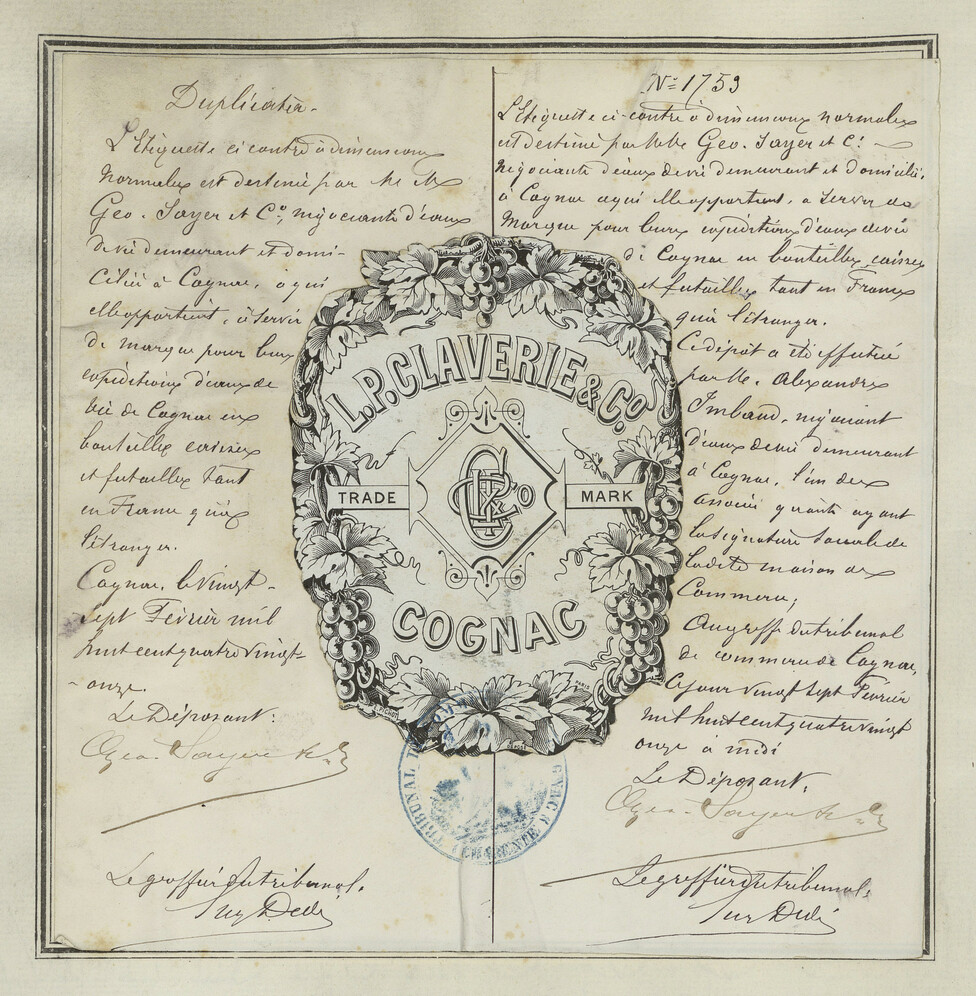 Duplicata.
L'Etiquette ci contre à dimensions
normales est destinée par MM
Geo. Sayer et Co, négociants d'eaux
de vie demeurant et domi-
ciliés à Cognac, a qui
elle appartient, à servir
de marque pour leurs
expéditions d'eaux de
vie de Cognac en
bouteilles caisses
et futailles tant
en France qu'à
l'étranger.
Cognac, le vingt-
sept Février mil
huit cent quatre vingt-
onze.
Le Déposant:
Geo. Sayer & Co
Le greffier du tribunal.
No 1753
L'Etiquette ci-contre à dimensions normales
est destinée par MM Geo. Sayer et Co
négociants d'eaux de vie demeurant et domiciliés,
à Cognac a qui elle appartient, a servir de
Marque pour leurs expéditions d'eaux de vie
de Cognac en bouteilles, caisses
et futailles tant en France
qu'a l'étranger.
Ce dépôt a été effectué
par M. Alexandre
Imbaud, négociant
d'eaux de vie demeurant
à Cognac, l'un des
associés gérants ayant
la signature sociale de
ladite maison de
Commerce;
Au greffe du tribunal
de commerce de Cognac,
Ce jour vingt sept Février
mil huit cent quatre vingt
onze à midi
Le Déposant,
Geo. Sayer & Co
Le greffier du tribunal:
L.P. CLAVERIE & Co
TRADE MARK
CCo
COGNAC
PARIS
DÉPOSÉ
TRIBUNAL DE COMM
CHARENTE